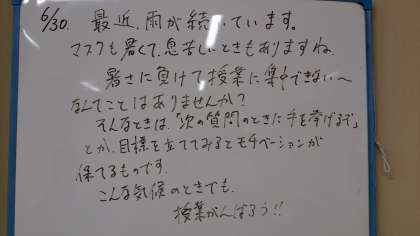 6/30. 最近、雨が続いています。
マスクも暑くて、息苦しいときもありますね
暑さに負けて授業に集中できない〜
なんてことはありませんか?
そんなときは、「次の質問のときに手を挙げるぞ」
とか、目標を立ててみるとモチベーションが
保てるものです。
こんな気候のときでも、
授業がんばろう!!